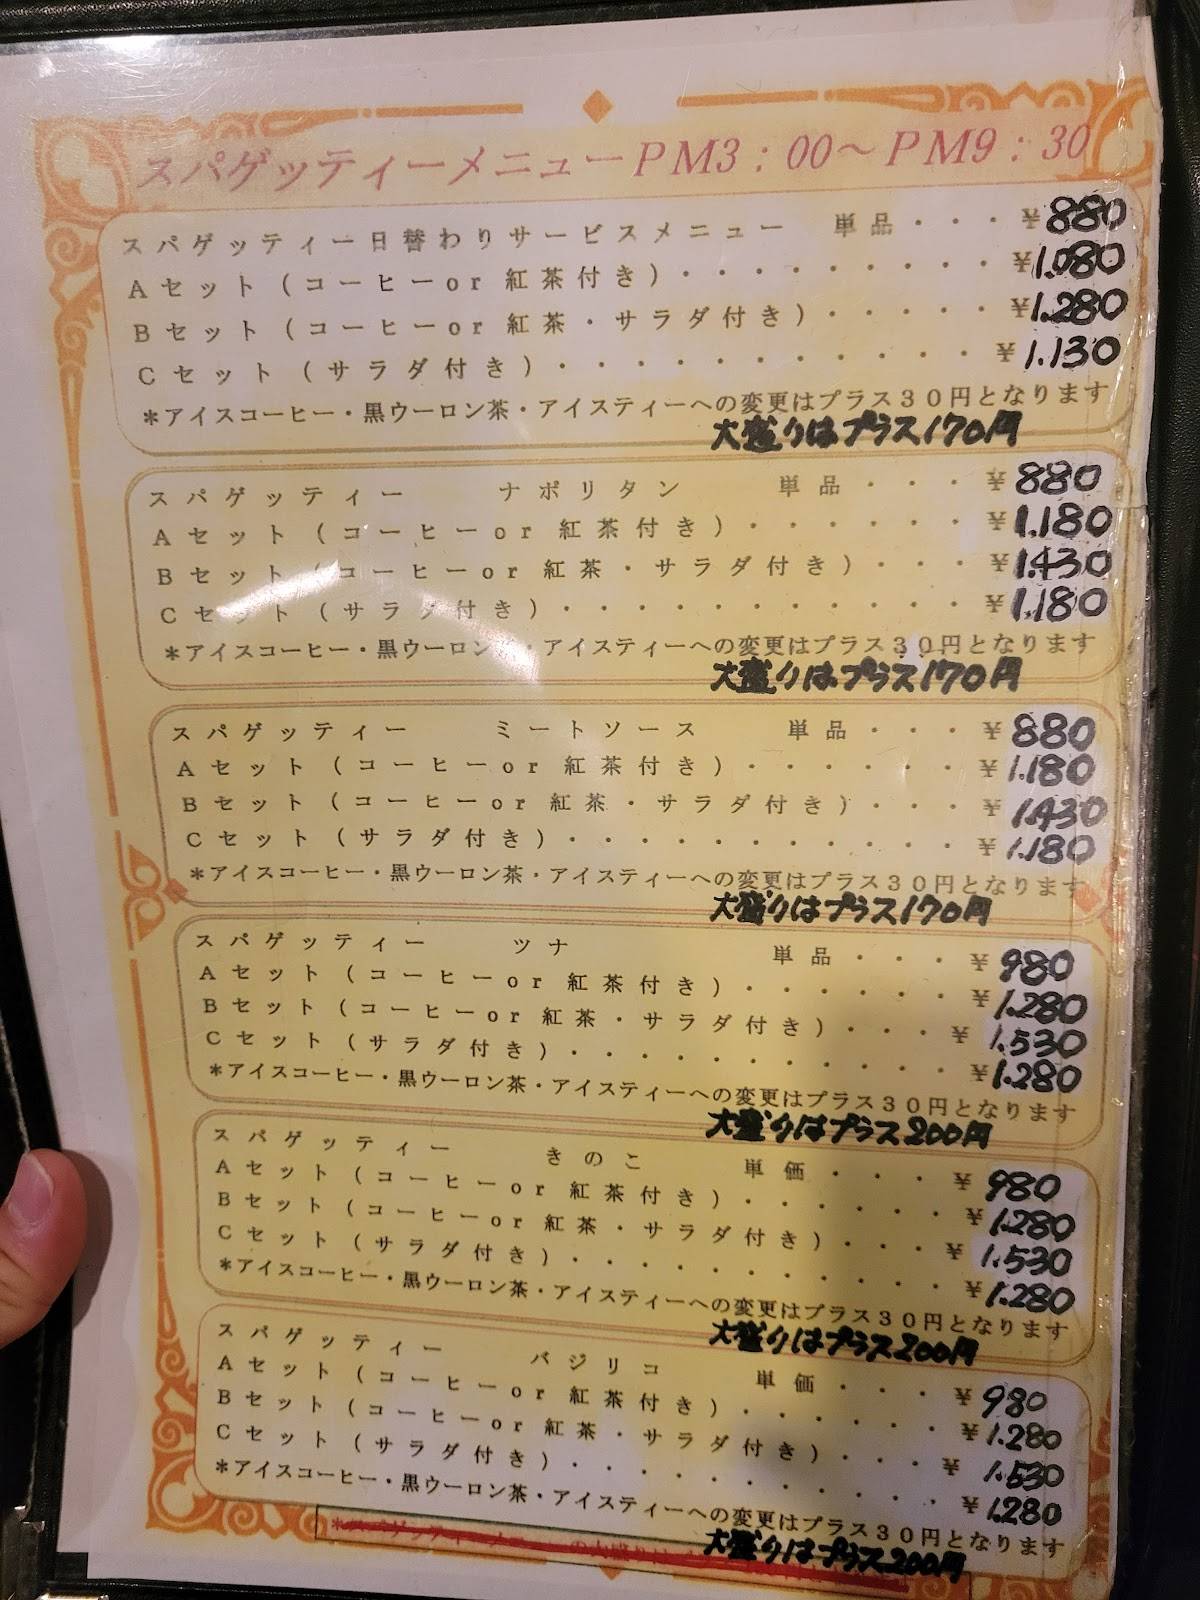 スパゲッティーメニューPM3：00～PM9：30
スパゲッティー日替わりサービスメニュー　単品・・・¥880
Aセット（コーヒーor紅茶付き）・・・・・・・・・¥1.080
Bセット（コーヒーor紅茶・サラダ付き）・・・・・¥1.280
Cセット（サラダ付き）・・・・・・・・・・・¥1.130
＊アイスコーヒー・黒ウーロン茶・アイスティーへの変更はプラス３０円となります
大盛りはプラス170円
スパゲッティー　ナポリタン　単品・・・¥880
Aセット（コーヒーor紅茶付き）・・・・・・¥1.180
Bセット（コーヒーor紅茶・サラダ付き）・・・¥1.430
Cセット（サラダ付き）・・・・・・・・・・¥1.180
＊アイスコーヒー・黒ウーロン茶・アイスティーへの変更はプラス３０円となります
大盛りはプラス170円
スパゲッティー　ミートソース　単品・・・¥880
Aセット（コーヒーor紅茶付き）・・・・・・¥1.180
Bセット（コーヒーor紅茶・サラダ付き）・・・¥1.430
Cセット（サラダ付き）・・・・・・・・・・¥1.180
＊アイスコーヒー・黒ウーロン茶・アイスティーへの変更はプラス３０円となります
大盛りはプラス170円
スパゲッティー　ツナ　単品・・・¥980
Aセット（コーヒーor紅茶付き）・・・・・・¥1.280
Bセット（コーヒーor紅茶・サラダ付き）・・・¥1.530
Cセット（サラダ付き）・・・・・・・・・・¥1.280
＊アイスコーヒー・黒ウーロン茶・アイスティーへの変更はプラス３０円となります
大盛りはプラス200円
スパゲッティー　きのこ　単価・・・¥980
Aセット（コーヒーor紅茶付き）・・・・・・¥1.280
Bセット（コーヒーor紅茶・サラダ付き）・・・¥1.530
Cセット（サラダ付き）・・・・・・・・・・¥1.280
＊アイスコーヒー・黒ウーロン茶・アイスティーへの変更はプラス３０円となります
大盛りはプラス200円
スパゲッティー　バジリコ　単価・・・¥980
Aセット（コーヒーor紅茶付き）・・・・・・¥1.280
Bセット（コーヒーor紅茶・サラダ付き）・・・¥1.530
Cセット（サラダ付き）・・・・・・・・・・¥1.280
＊アイスコーヒー・黒ウーロン茶・アイスティーへの変更はプラス３０円となります
大盛りはプラス200円